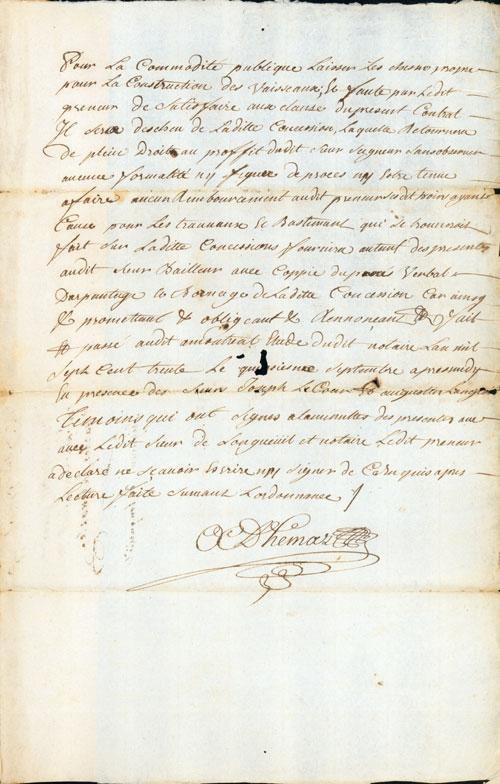 Pour La Commodité publique Laisser Les chesne propre
pour La Construction des Vaisseaux, Et faute par Ledit
preneur de Satisfaire aux clause du present Contrat
Il sera descheu de Laditte Concession, Laquelle Retournera
de plein Droit au proffit dudit Sieur Seigneur Sans observer
aucune formalité ny figure de proces ny Estre tenue
a faire aucun Remboursement audit preneur
Cause pour Les travaux Et Bastiment qui Se trouvroit
fait Sur Laditte Concession fournira autant des presentes
audit Sieur Bailleur avec Coppie du Verbal
Darpantage Et Bornage de Laditte Concession Car ainsy
& promettant & obligeant & Renonceant & fait
& passé audit montreal Etude dudit notaire Lan mil
Sept Cent trente Le Septembre apresmidy
En presence des Sieurs Joseph Le Cour Et augustin
Temoins qui ont Signes a la minutte des presentes
avec Ledit Sieur de Longueuil et notaire Ledit preneur
a declaré ne Scavoir Escrire ny Signer de Ce Enquis apres
Lecture faite Suivant Lordonnance /
Dhemar